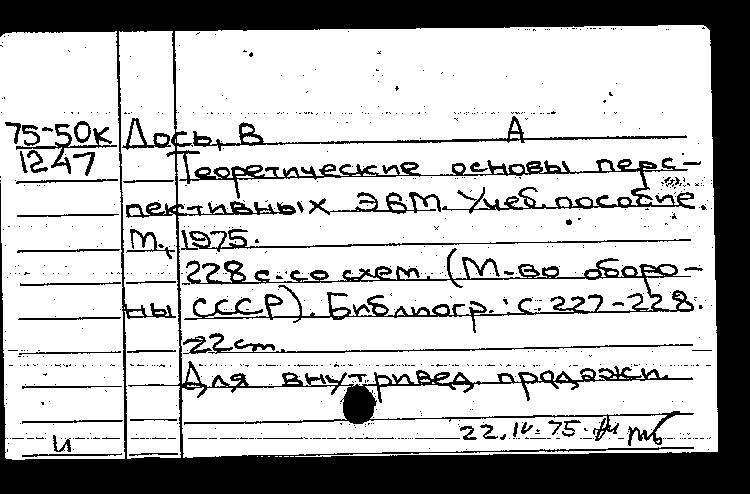 75-50к Лось, В А
1247 Теоретические основы перс-
пективных ЭВМ. Учеб. пособие.
М., 1975.
228 с. со схем. (М-во оборо-
ны СССР). Библиогр.: с. 227-228.
22 см.
Для внутривед. продажи.
22.IV.75.
и